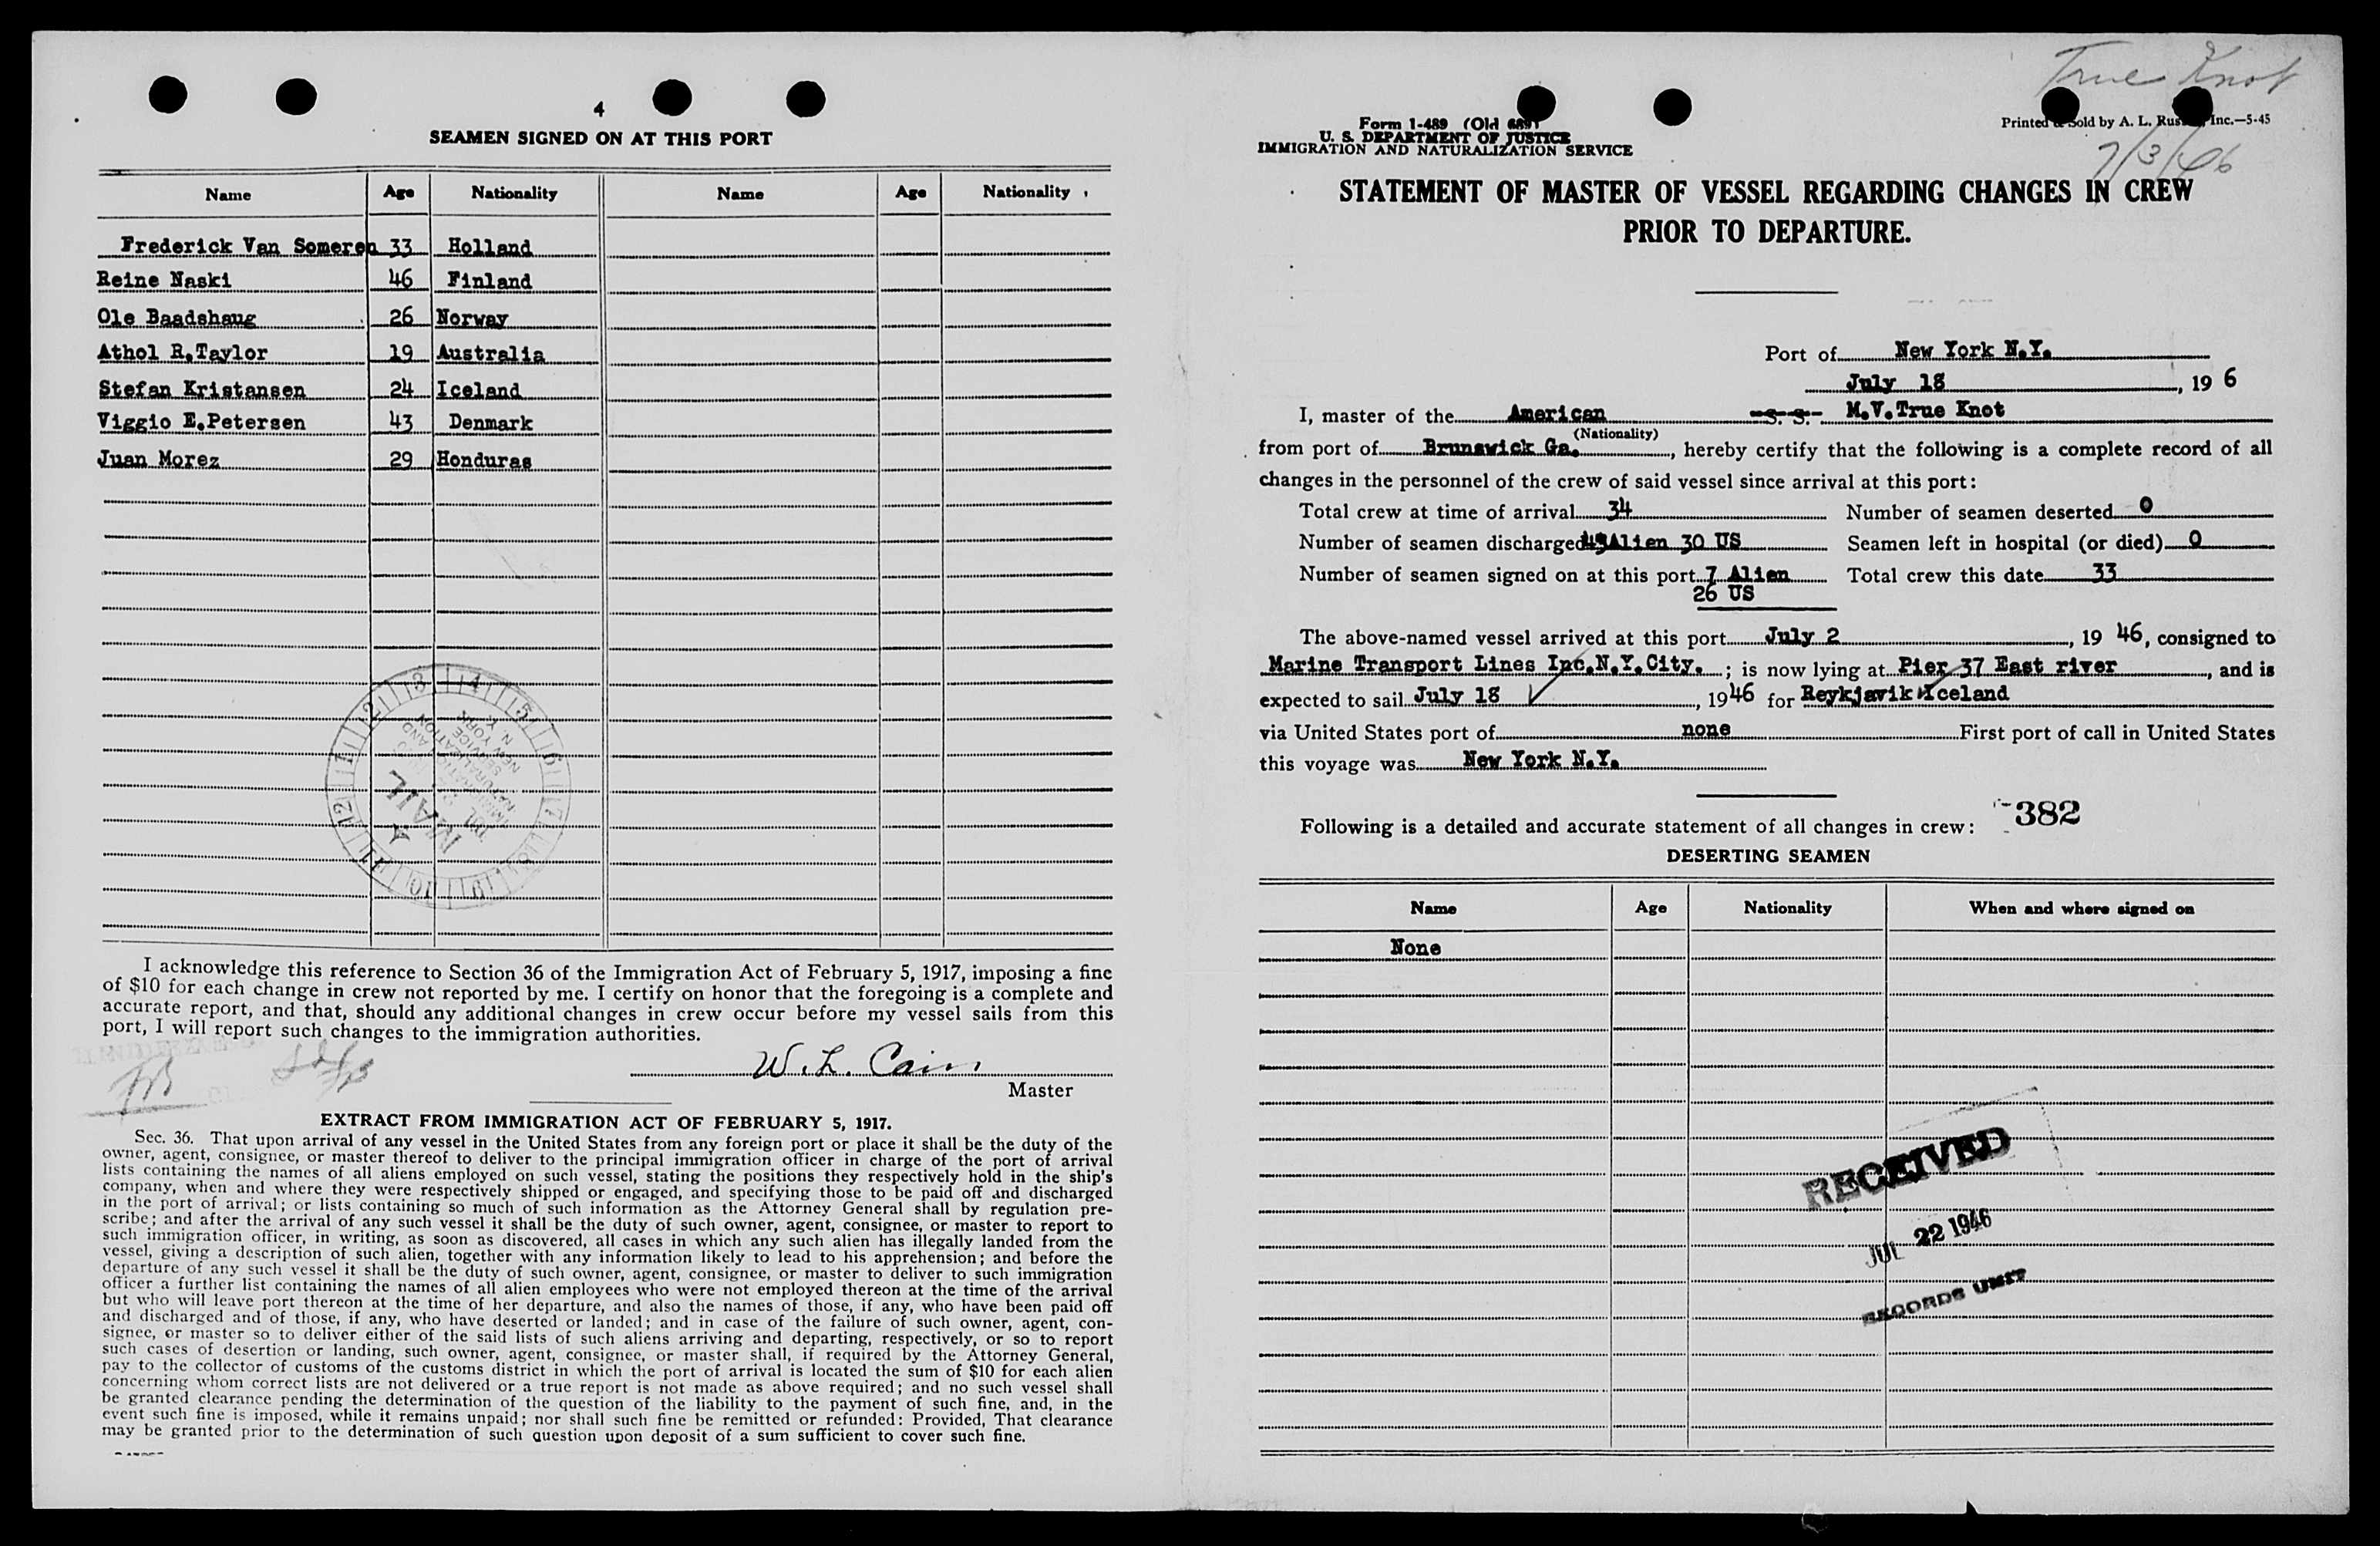 4
SEAMEN SIGNED ON AT THIS PORT
Name Age Nationality Name Age Nationality
Frederick Van Someren 33 Holland
Reine Naski 46 Finland
Ole Baadshaug 26 Norway
Athol R.Taylor 19 Australia
Stefan Kristansen 24 Iceland
Viggio E.Petersen 43 Denmark
Juan Morez 29 Honduras
I acknowledge this reference to Section 36 of the Immigration Act of February 5, 1917, imposing a fine
of $10 for each change in crew not reported by me. I certify on honor that the foregoing is a complete and
accurate report, and that, should any additional changes in crew occur before my vessel sails from this
port, I will report such changes to the immigration authorities.
W. L. Cain
Master
EXTRACT FROM IMMIGRATION ACT OF FEBRUARY 5, 1917.
Sec. 36. That upon arrival of any vessel in the United States from any foreign port or place it shall be the duty of the
owner, agent, consignee, or master thereof to deliver to the principal immigration officer in charge of the port of arrival
lists containing the names of all aliens employed on such vessel, stating the positions they respectively hold in the ship's
company, when and where they were respectively shipped or engaged, and specifying those to be paid off and discharged
in the port of arrival; or lists containing so much of such information as the Attorney General shall by regulation pre-
scribe; and after the arrival of any such vessel it shall be the duty of such owner, agent, consignee, or master to report to
such immigration officer, in writing, as soon as discovered, all cases in which any such alien has illegally landed from the
vessel, giving a description of such alien, together with any information likely to lead to his apprehension; and before the
departure of any such vessel it shall be the duty of such owner, agent, consignee, or master to deliver to such immigration
officer a further list containing the names of all alien employees who were not employed thereon at the time of the arrival
but who will leave port thereon at the time of her departure, and also the names of those, if any, who have been paid off
and discharged and of those, if any, who have deserted or landed; and in case of the failure of such owner, agent, con-
signee, or master so to deliver either of the said lists of such aliens arriving and departing, respectively, or so to report
such cases of desertion or landing, such owner, agent, consignee, or master shall, if required by the Attorney General,
pay to the collector of customs of the customs district in which the port of arrival is located the sum of $10 for each alien
concerning whom correct lists are not delivered or a true report is not made as above required; and no such vessel shall
be granted clearance pending the determination of the question of the liability to the payment of such fine, and, in the
event such fine is imposed, while it remains unpaid; nor shall such fine be remitted or refunded: Provided, That clearance
may be granted prior to the determination of such question upon deposit of a sum sufficient to cover such fine.
True Knot
7/3/46
Form 1-489 (Old 689)
U. S. DEPARTMENT OF JUSTICE
IMMIGRATION AND NATURALIZATION SERVICE
Printed & Sold by A. L. Inc.—5-45
STATEMENT OF MASTER OF VESSEL REGARDING CHANGES IN CREW
PRIOR TO DEPARTURE.
Port of New York N.Y.
July 18, 19 6
I, master of the American S. S. M.V.True Knot
(Nationality)
from port of Brunswick Ga., hereby certify that the following is a complete record of all
changes in the personnel of the crew of said vessel since arrival at this port:
Total crew at time of arrival 34 Number of seamen deserted 0
Number of seamen discharged Alien 30 US Seamen left in hospital (or died) 0
Number of seamen signed on at this port 7 Alien Total crew this date 33
26 US
The above-named vessel arrived at this port July 2, 19 46, consigned to
Marine Transport Lines Inc.N.Y.City. ; is now lying at Pier 37 East river, and is
expected to sail July 18, 1946 for Reykjavik Iceland
via United States port of none First port of call in United States
this voyage was New York N.Y.
382
Following is a detailed and accurate statement of all changes in crew:
DESERTING SEAMEN
Name Age Nationality When and where signed on
None
RECEIVED
JUL 22 1946
RECORDS UNIT